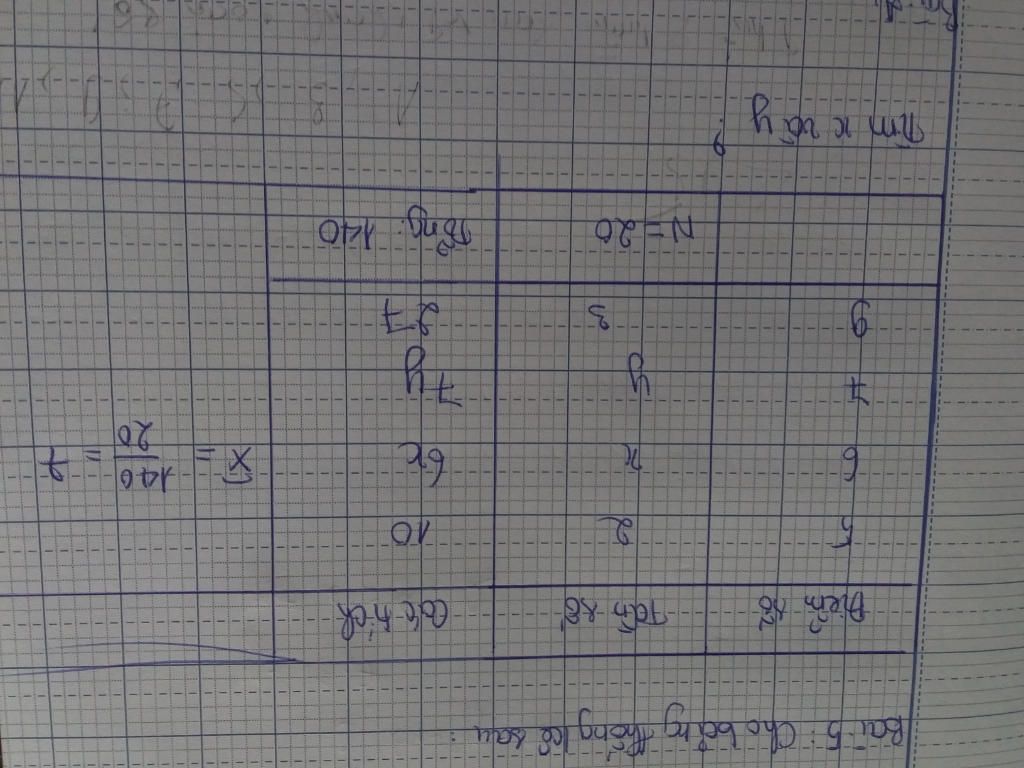 Bài 5: Cho bảng thống kê sau:
Điểm số Tần số Các tích
5 2 10
6 x 6x
7 y 7y
9 3 27
N = 20 Tổng: 140
X̄ = 140/20 = 7
Tìm x và y ?